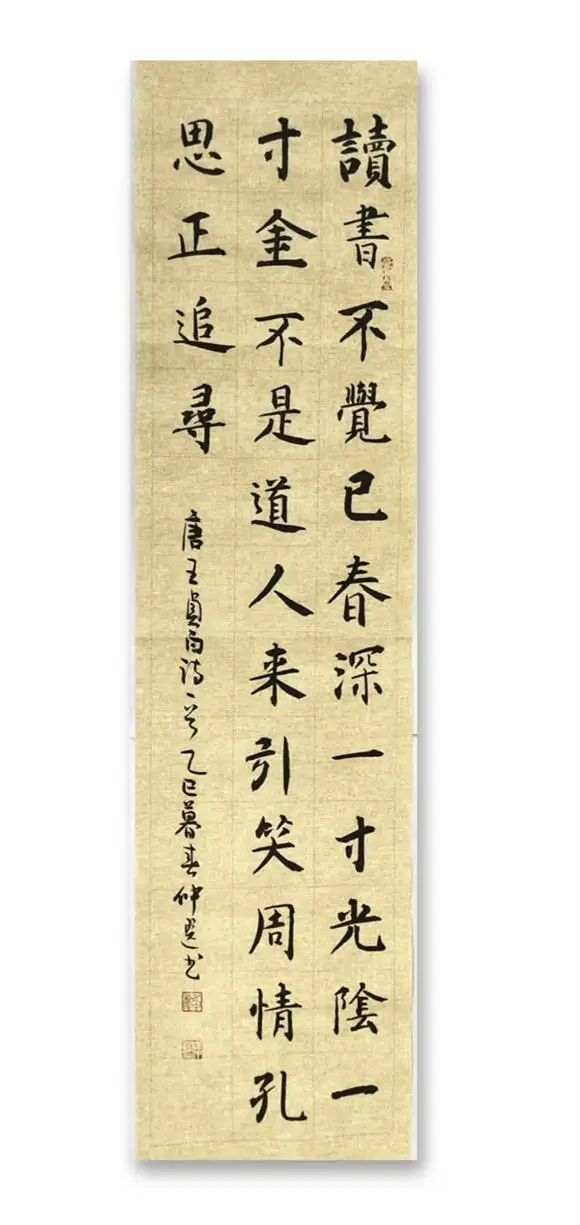 讀書不覺已春深一寸光陰一
寸金不是道人来引笑周情孔
思正追尋
唐王貞白詩一首乙巳暮春仲書